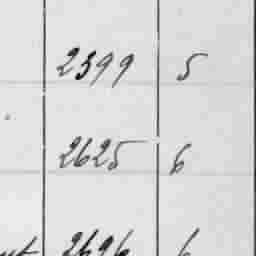 2399 5
2625 6
2696 6